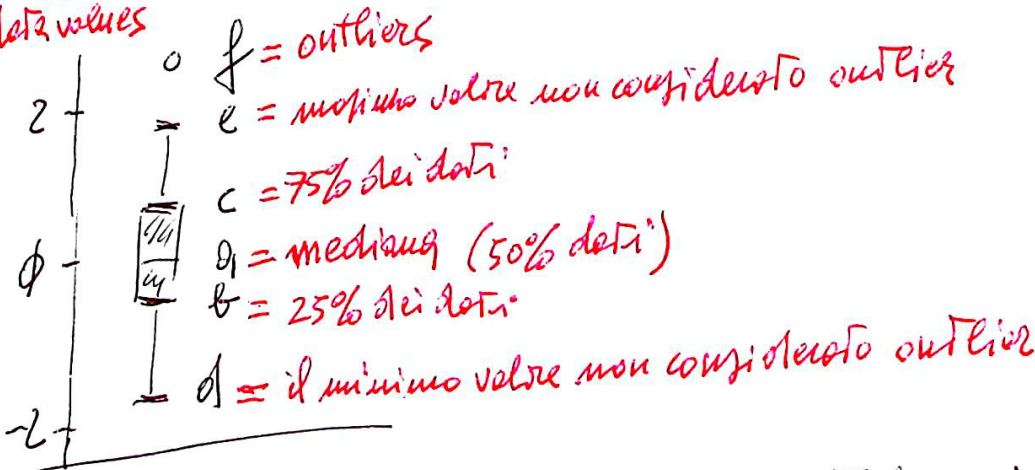 data values
f = outliers
2 e = massimo valore non considerato outlier
c = 75% dei dati
φ a = mediana (50% dati)
b = 25% dei dati
d = il minimo valore non considerato outlier
-2